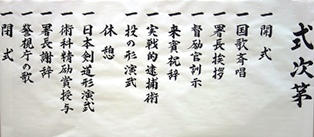 式次第
一 開式
一 国歌斉唱
一 署長挨拶
一 督励官訓示
一 来賓祝辞
一 実戦的逮捕術
一 投の形演武
休憩
一 日本剣道形演武
一 術科精励賞授与
一 署長謝辞
一 警視庁の歌
一 閉式